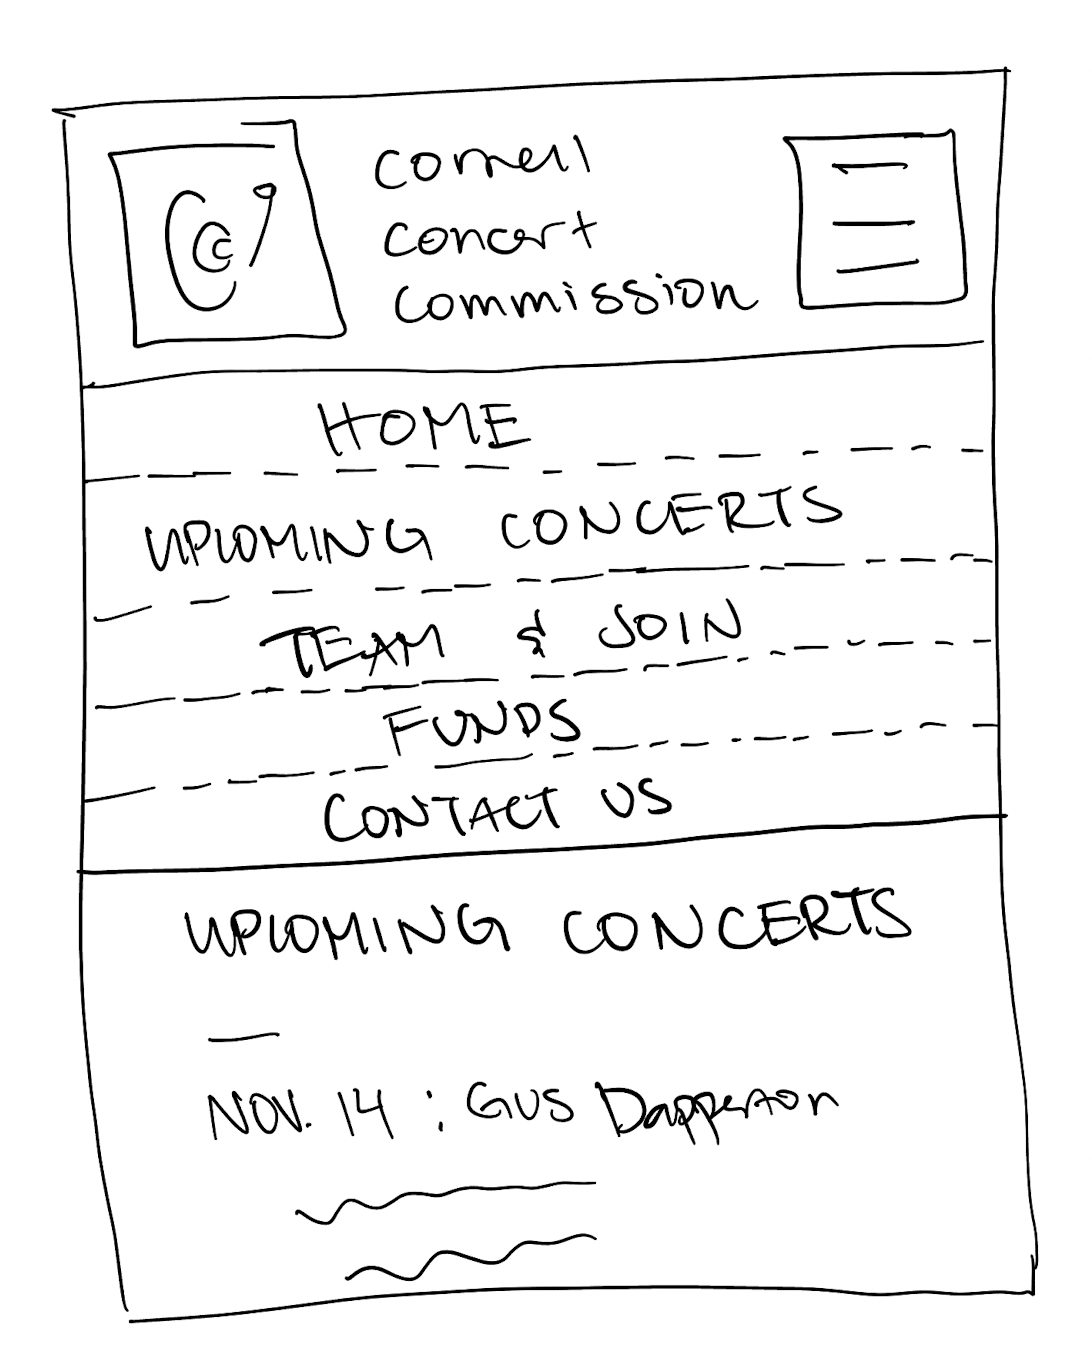 CCC
Cornell
Concert
Commission
HOME
UPCOMING CONCERTS
TEAM & JOIN
FUNDS
CONTACT US
UPCOMING CONCERTS
NOV. 14 : GUS Dapperton